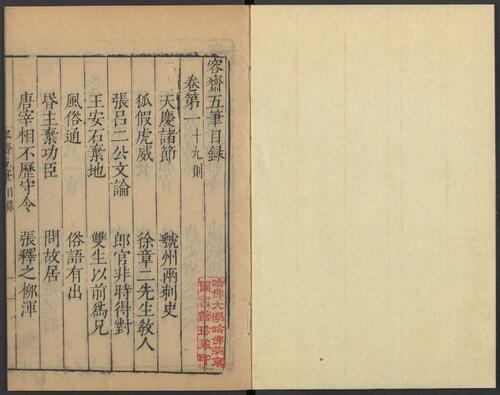 容齋五筆目録
卷第一 十九則
天慶諸節 虢州兩刺史
狐假虎威 徐章二先生教人
張呂二公文論 郎官非時得對
王安石棄地 雙生以前爲兄
風俗通 俗語有出
昏主棄功臣 問故居
唐宰相不歷守令 張釋之柳渾
哈佛大學哈佛燕京
圖書館珍藏印